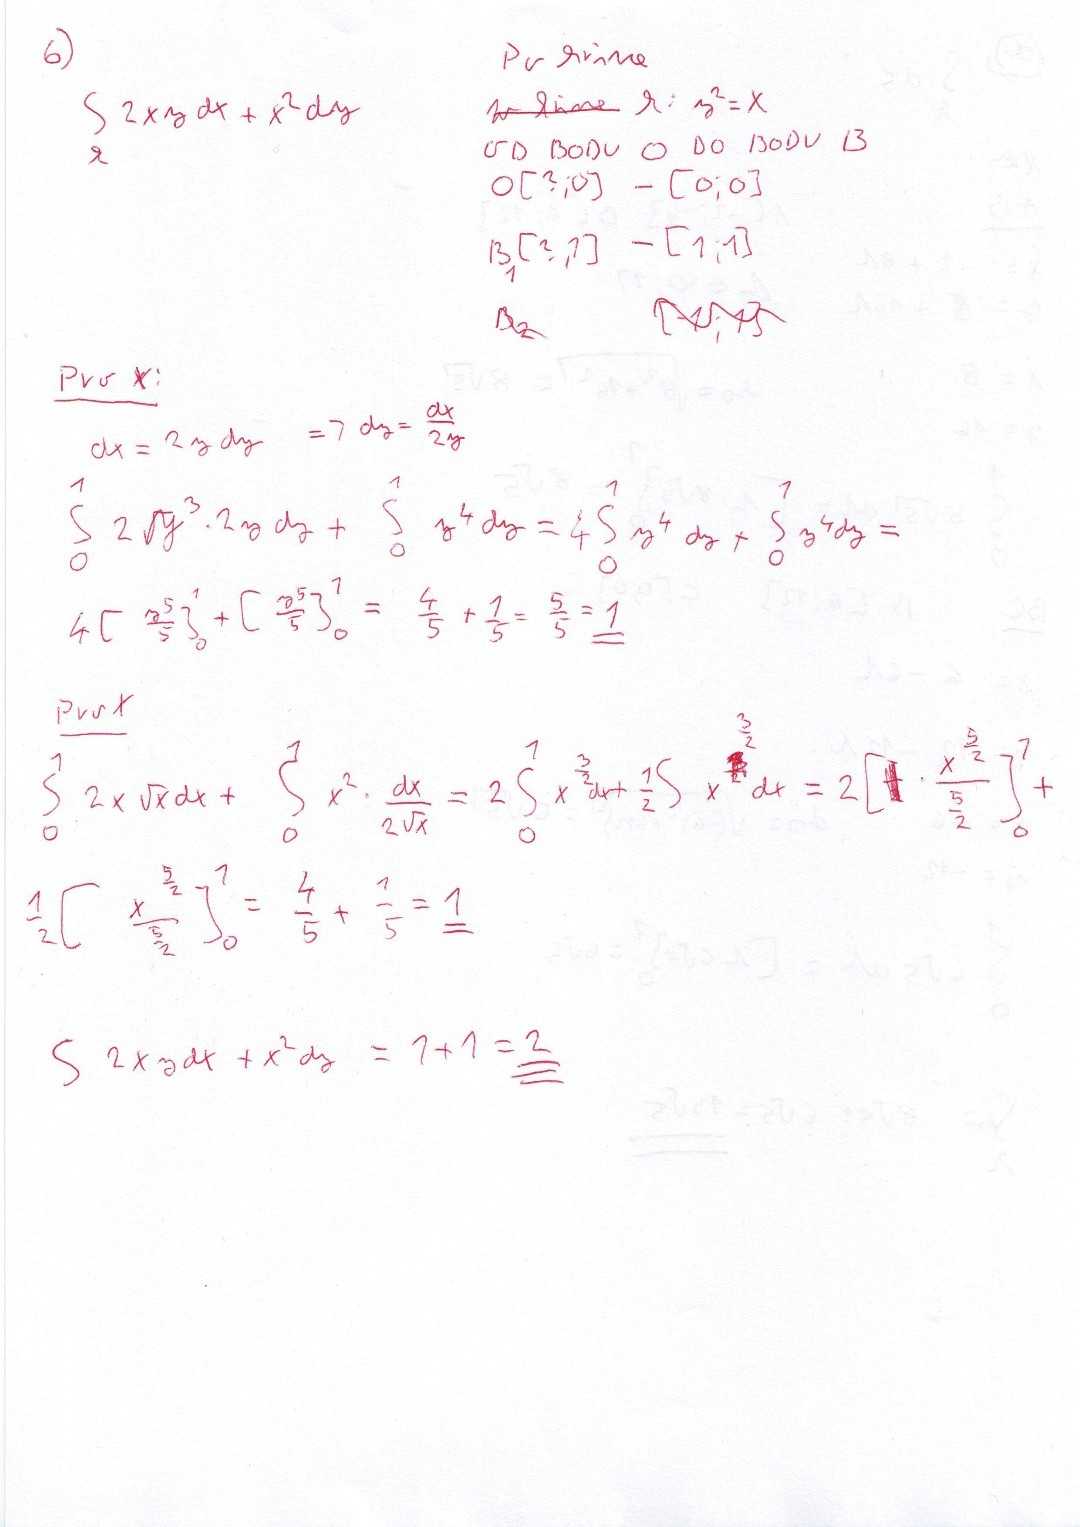 6)
∫ 2xy dx + x² dy
r
Po křivce
r: y² = x
OD BODU O DO BODU B
O[?;0] – [0;0]
B₁[?,1] – [1;1]
B₂
Pro x:
dx = 2y dy => dy = dx/2y
∫₀¹ 2√y³·2y dy + ∫₀¹ y⁴ dy = 4∫₀¹ y⁴ dy + ∫₀¹ y⁴ dy =
4[y⁵/5]₀¹ + [y⁵/5]₀¹ = 4/5 + 1/5 = 5/5 = 1
Pro x
∫₀¹ 2x √x dx + ∫₀¹ x² · dx/2√x = 2∫₀¹ x^(3/2) dx + 1/2 ∫ x^(3/2) dx = 2[ · x^(5/2)/(5/2)]₀¹ +
1/2 [x^(5/2)/(5/2)]₀¹ = 4/5 + 1/5 = 1
∫ 2xy dx + x² dy = 1+1 = 2